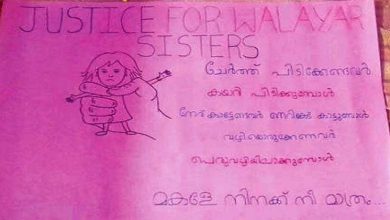 JUSTICE FOR WALAYAR
SISTERS
ചേർത്ത് പിടിക്കേണ്ടവർ
കയറി പിടിക്കുമ്പോൾ
നേർ കാട്ടേണ്ടവർ നെറികേട് കാട്ടുമ്പോൾ
വഴിയൊരുക്കേണവർ
പെരുവഴിയിലാക്കുമ്പോൾ
മകളേ നിനക്ക് നീ മാത്രം...